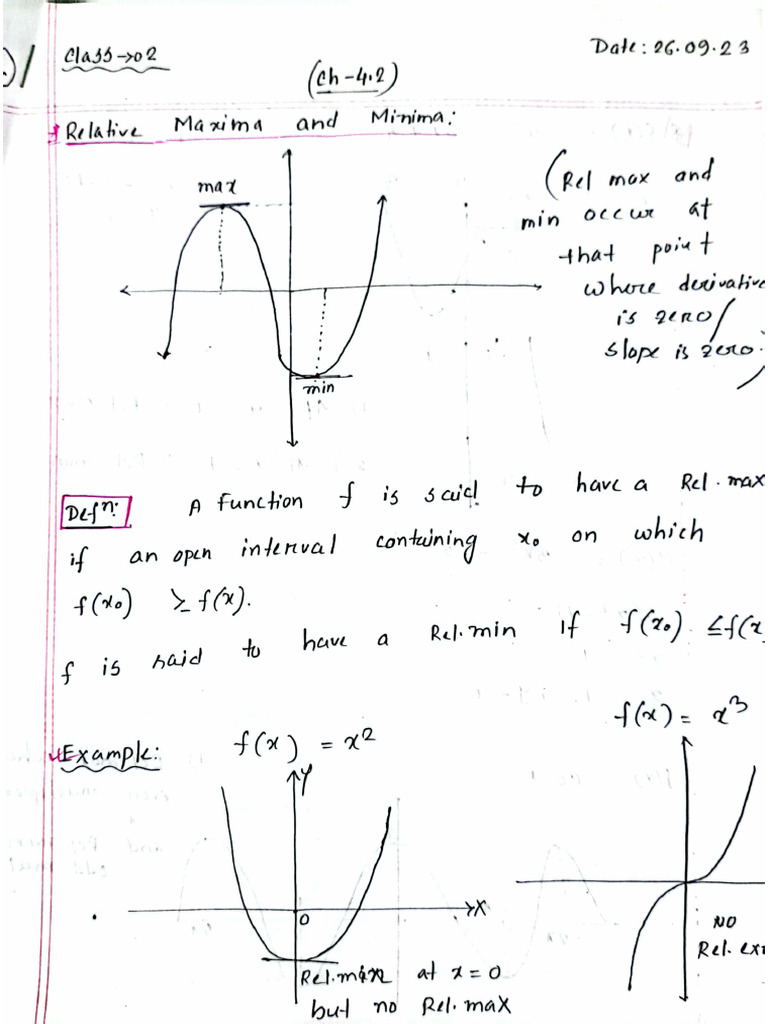 Class→02
Date: 26.09.23
(Ch-4.2)
Relative Maxima and Minima:
max
min
(Rel max and
min occur at
that point
where derivative
is zero/
slope is zero.
Defⁿ: A function f is said to have a Rel. max
if an open interval containing x₀ on which
f(x₀) ≥ f(x).
f is said to have a Rel. min if f(x₀) ≤ f(x
Example: f(x) = x²
f(x) = x³
y
x
0
Rel. min at x = 0
but no Rel. max
NO
Rel. ex